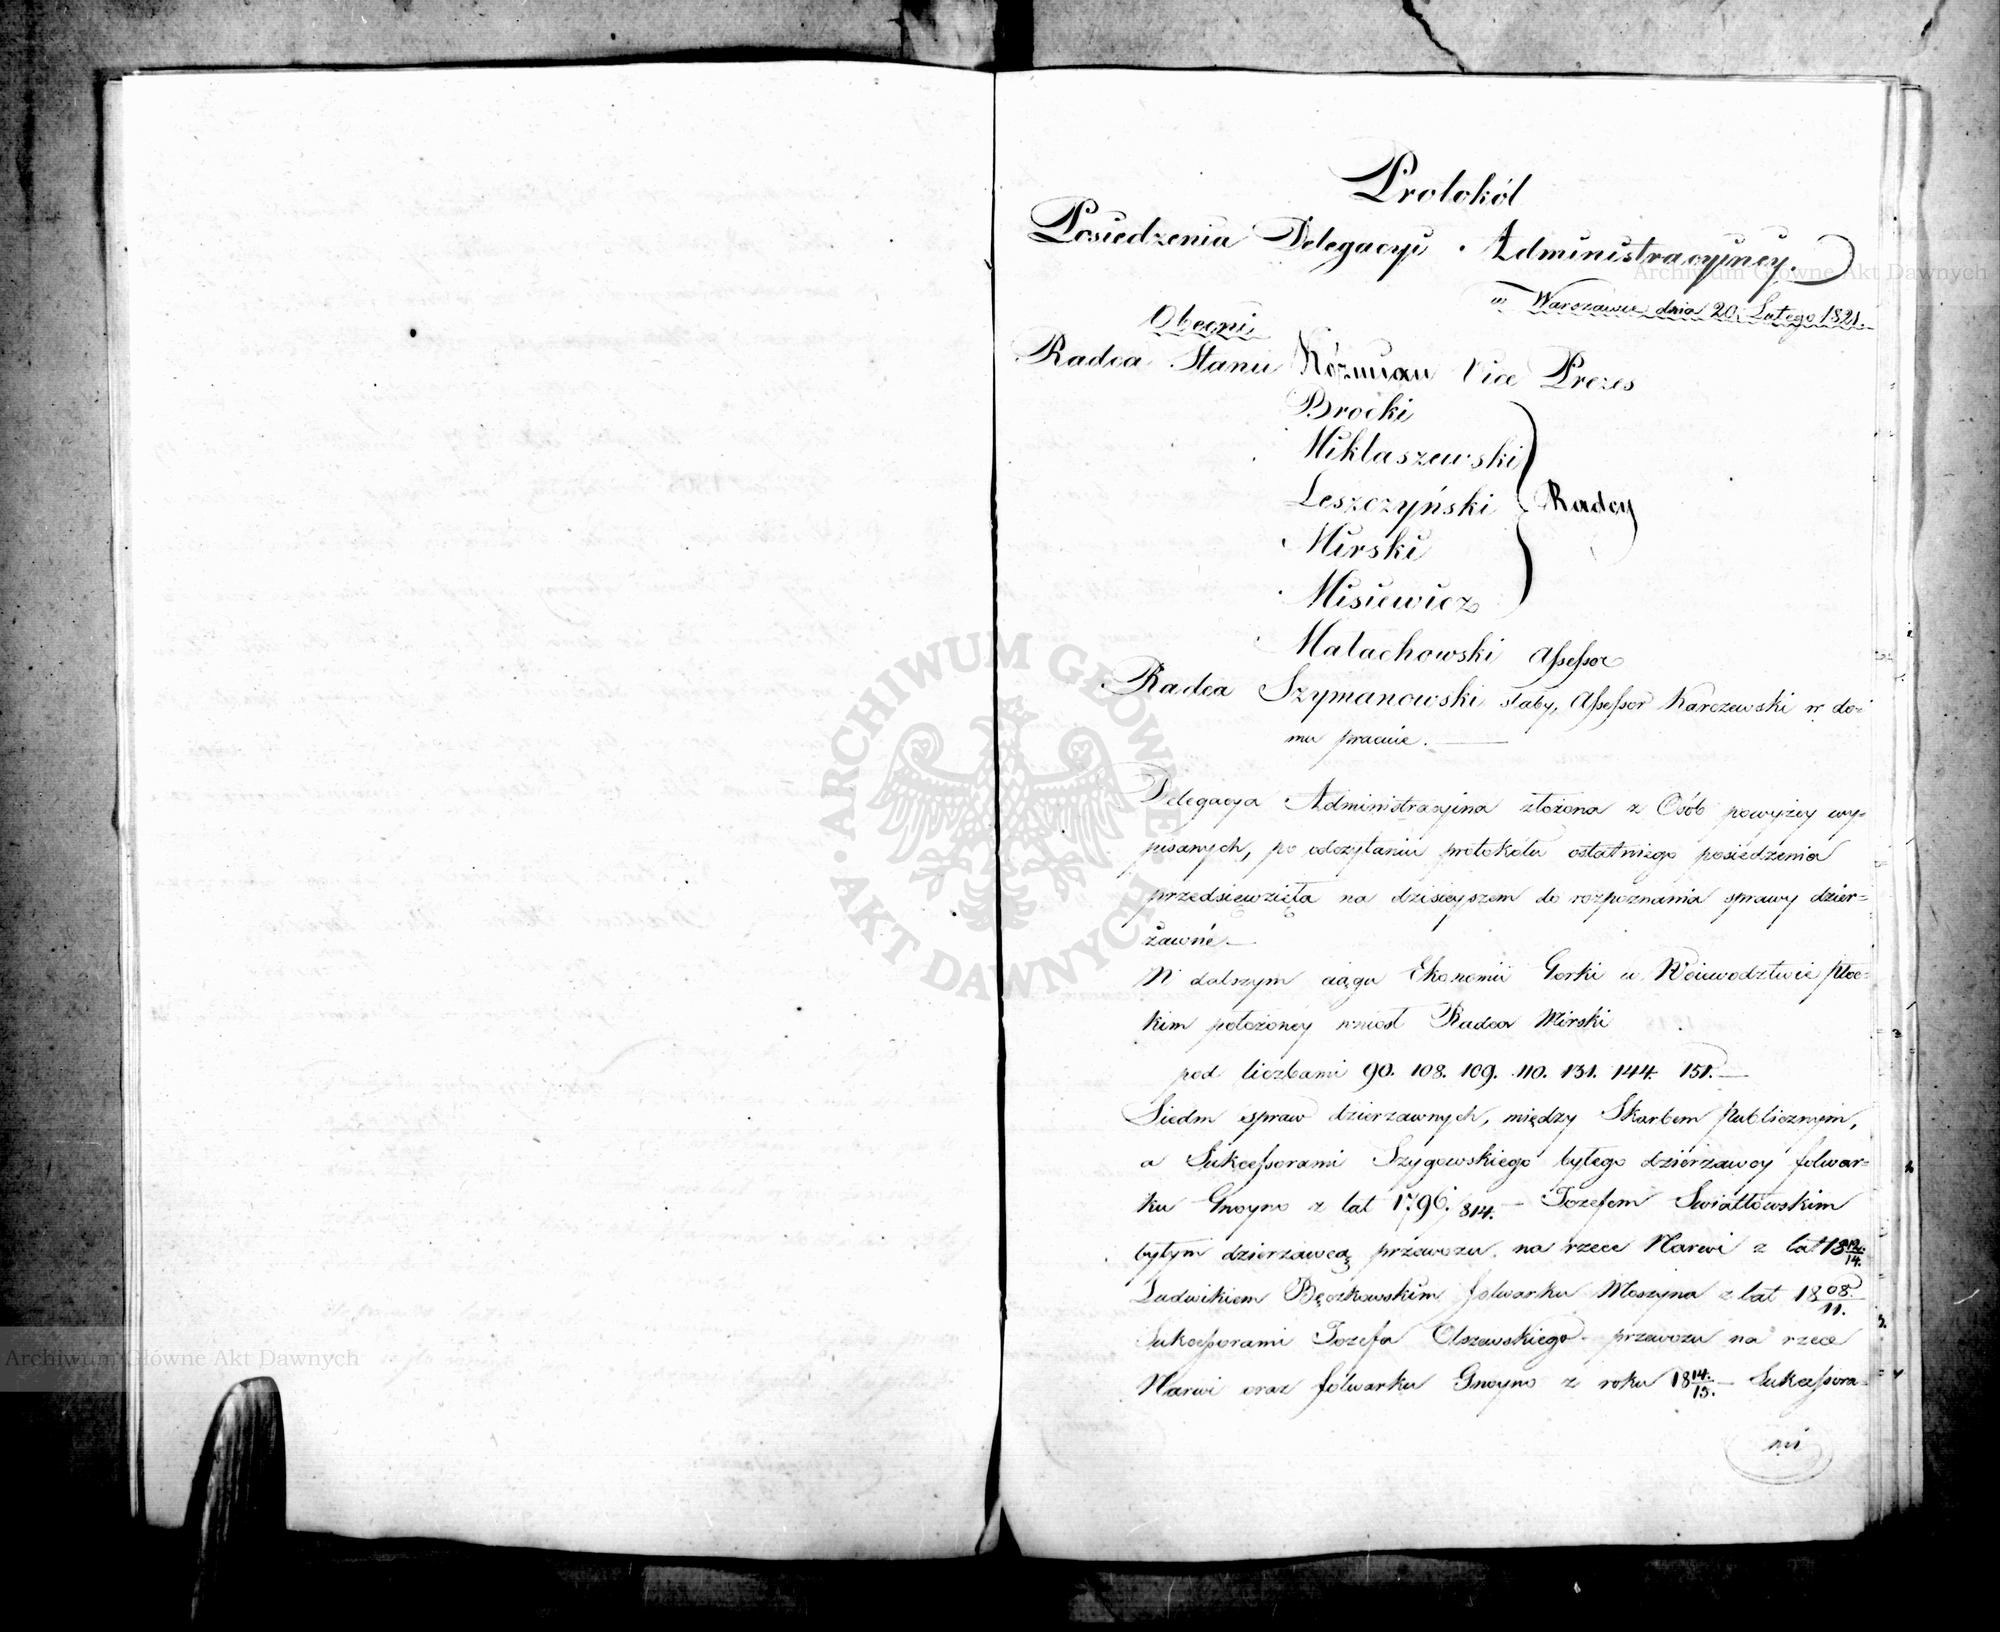 Protokół
Posiedzenia Delegacyi Administracyiney.
w Warszawie dnia 20. Lutego 1821.
Obecni
Radca Stanu Kózmian Vice Prezes
Brocki
Miklaszewski
Leszczyński
Radcy
Mirski
Misiewicz
Małachowski Assessor
Radca Szymanowski słaby, Assessor Karczewski w do-
mu pracuie.
Delegacya Administracyina złożona z Osób powyżey wy-
pisanych, po odczytaniu protokółu ostatniego posiedzenia
przedsięwzięła na dzisieyszem do rozpoznania sprawy dzier-
żawne
W dalszym ciągu Ekonomii Gorki w Woiewodztwie Płoc-
kim położoney wniosł Radca Mirski
pod liczbami 90. 108. 109. 110. 131. 144. 151.
Siedm spraw dzierzawnych, między Skarbem Publicznym,
a Sukcessorami Szygowskiego byłego dzierzawcy folwar-
ku Gnoyno z lat 1796/814. — Jozefem Swiatłowskim
byłym dzierzawcą przewozu na rzece Narwi z lat 1812/14.
Ludwikiem Bęczkowskim folwarku Moszyna z lat 1808/11.
Sukcessorami Jozefa Olszewskiego przewozu na rzece
Narwi oraz folwarku Gnoyno z roku 1814/15. — Sukcessora-
mi
ARCHIWUM GŁÓWNE AKT DAWNYCH
Archiwum Główne Akt Dawnych
Archiwum Główne Akt Dawnych